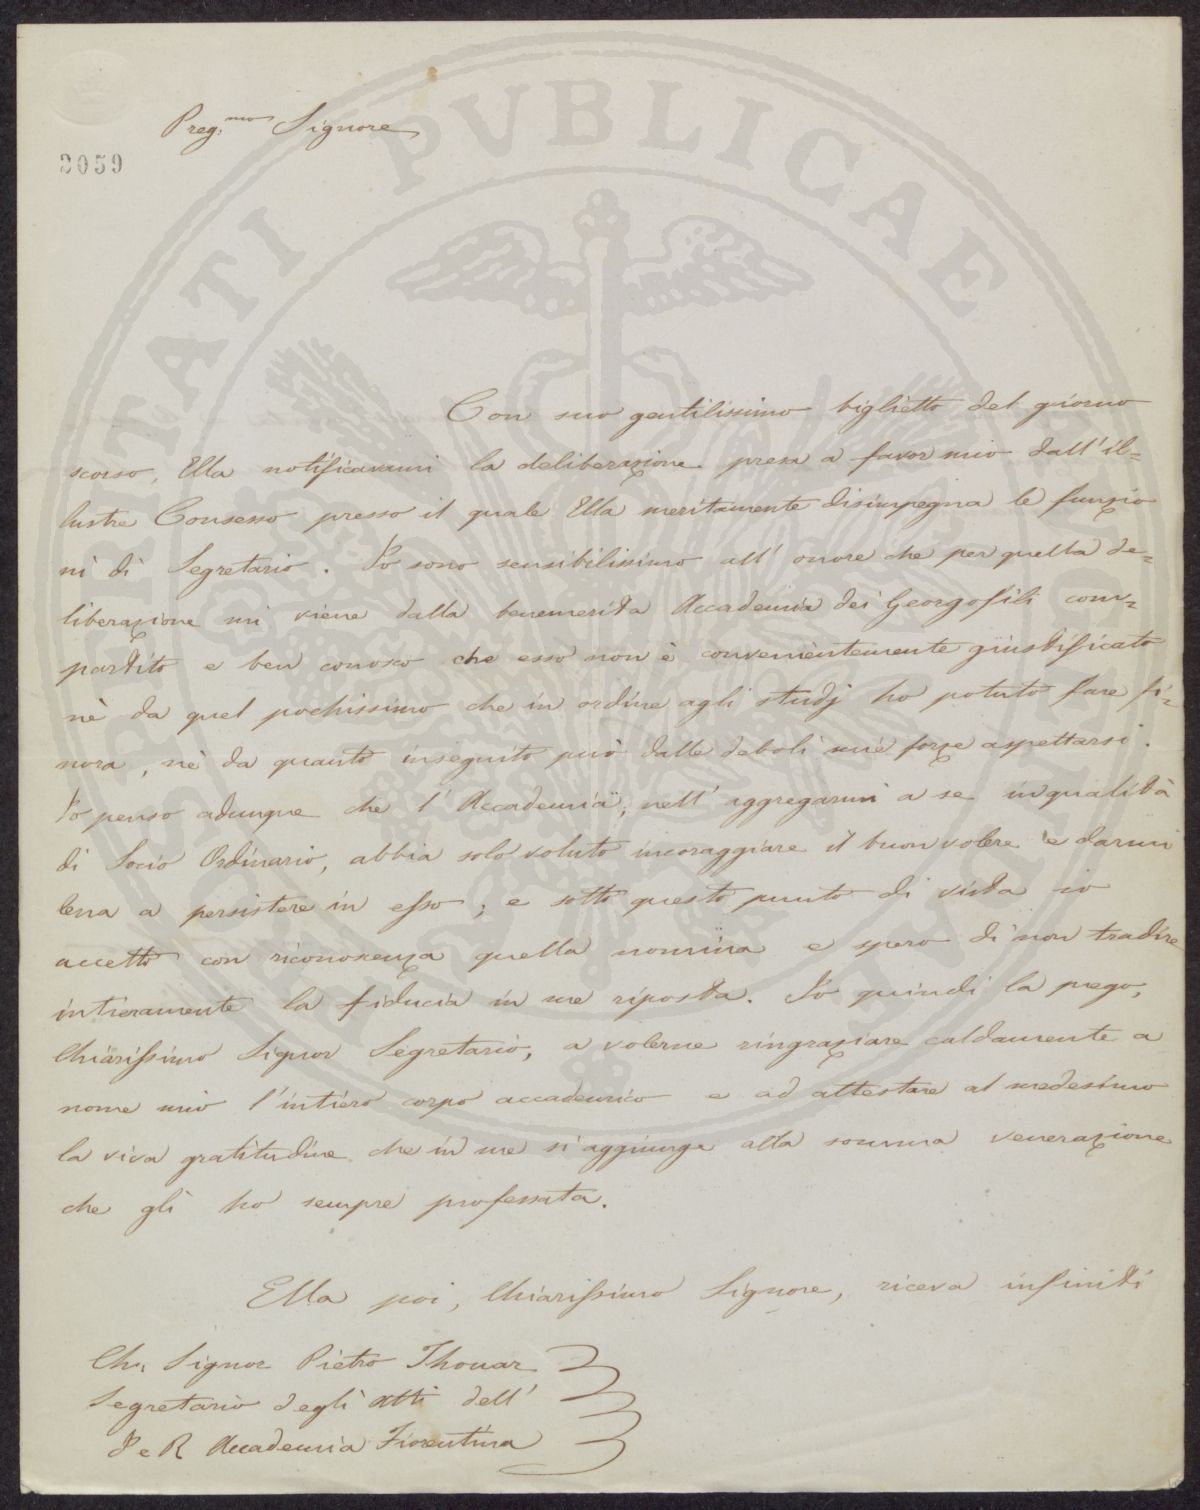 Preg.mo Signore
3059
Con suo gentilissimo biglietto del giorno
scorso, Ella notificavami la deliberazione presa a favor mio dall'il=
lustre Consesso presso il quale Ella meritamente disimpegna le funzio
ni di Segretario. Io sono sensibilissimo all'onore che per quella de=
liberazione mi viene dalla benemerita Accademia dei Georgofili com=
partito e ben conosco che esso non è convenientemente giustificato
nè da quel pochissimo che in ordine agli studj ho potuto fare fi=
nora, nè da quanto inseguito può dalle deboli mie forze aspettarsi.
Io penso adunque che l'Accademia, nell'aggregarmi a se in qualità
di Socio Ordinario, abbia solo voluto incoraggiare il buon volere e darmi
lena a persistere in esso; e sotto questo punto di vista io
accetto con riconoscenza quella nomina e spero di non tradire
intieramente la fiducia in me riposta. Io quindi la prego,
Chiarissimo Signor Segretario, a volerne ringraziare caldamente a
nome mio l'intiero corpo accademico e ad attestare al medesimo
la viva gratitudine che in me si aggiunge alla somma venerazione
che gli ho sempre professata.
Ella poi, Chiarissimo Signore, riceva infiniti
Ch. Signor Pietro Thouar
Segretario degli Atti dell'
I e R Accademia Fiorentina
PROSPERITATI PVBLICAE AVGENDAE